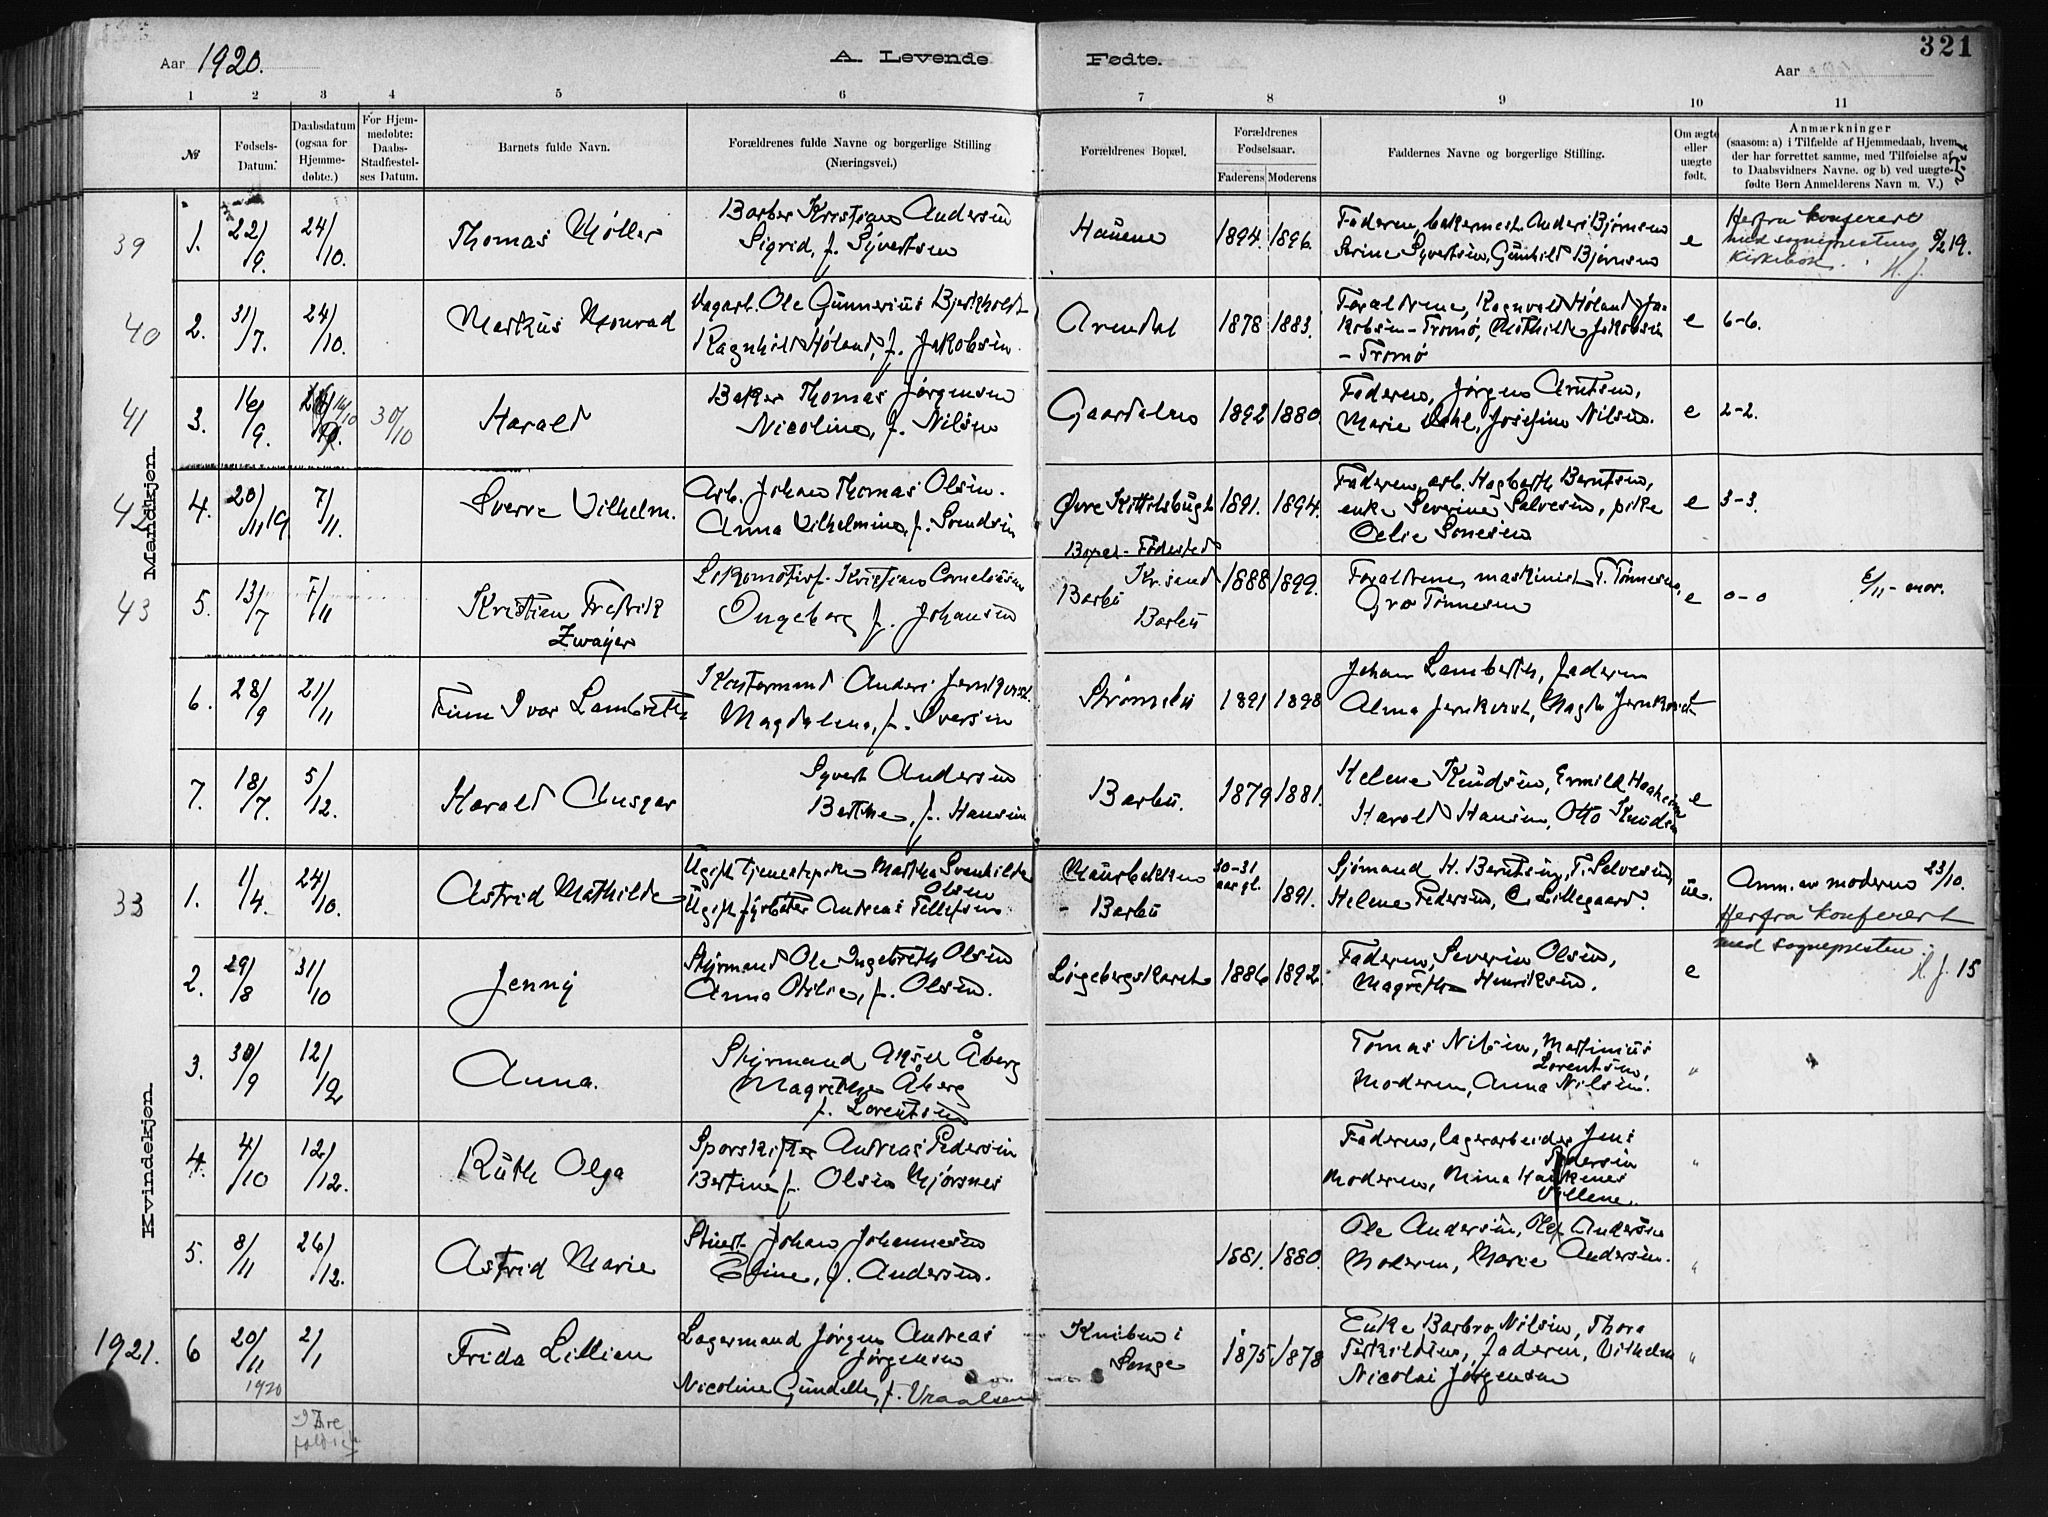 Aar 1920.
A. Levende Fødte.
Aar
321
1 2 3 4 5 6 7 8 9 10 11
№
Fødsels-
Datum.
Daabsdatum
(ogsaa for
Hjemme-
døbte.)
For Hjem-
medøbte:
Daabs-
Stadfæstel-
ses Datum.
Barnets fulde Navn.
Forældrenes fulde Navne og borgerlige Stilling
(Næringsvei.)
Forældrenes Bopæl.
Forældrenes
Fødselsaar.
Faderens Moderens
Faddernes Navne og borgerlige Stilling.
Om ægte
eller
uægte
født.
Anmærkninger
(saasom: a) i Tilfælde af Hjemmedaab, hvem
der har forrettet samme, med Tilføielse af
to Daabsvidners Navne. og b) ved uægte-
fødte Børn Anmelderens Navn m. V.)
Mandkjøn.
39 1. 22/9. 24/10. Thomas Møller
Barber Kristian Andersen
Sigrid, f. Syvertsen
Hauene 1894. 1896.
Faderen, bakermest. Anders Bjørnsen
Serine Syvertsen, Gunhild Bjørnsen
e
Herfra konferert
med sogneprestens
kirkebok. H. J.
6/2 19.
40 2. 31/7. 24/10. Markus Monrad
Ole Gunnerius Bjerkholt
Ragnhild Høland, f. Jakobsen
Arendal 1878 1883.
Forældrene, Ragnvald Høland Ja-
kobsen-Tromø, Mathilde Jakobsen
- Tromø
e 6-6.
41 3. 16/9. 30/10 Harald
Baker Thomas Jørgensen
Nicoline, f. Nilsen
Gaardalen 1892 1880.
Faderen, Jørgen Arntsen,
Marie Dahl, Josefine Nilsen.
e 2-2.
42 4. 20/11 19. 7/11. Sverre Vilhelm.
Arb. Johan Thomas Olsen.
Anna Vilhelmine, f. Svendsen
Øvre Kittelsbugt 1891. 1894.
Faderen, arb. Hagbarth Berntsen,
enke Severine Salvesen, pike
Celie Sonesen
e 3-3.
43 5. 13/7 7/11 Kristian Fredrik
Zwayer
Lokomotivf. Kristian Corneliussen
Ingeborg f. Johansen
Bopæl - Fødested
Kr.sand
Barbu
Barbu
1888 1899.
Forældrene, maskinist T. Tønnesen,
Gro Tønnesen
e 0-0 6/11 - mor.
6. 28/9 21/11 Finn Ivar Lambreth
Kontormand Anders Jernkvist
Magdalena, f. Iversen
Strømsbu 1891 1898
Johan Lamberth, faderen
Alma Jernkvist, Magda Jernkvist
7. 18/7. 5/12. Harald Ansgar
Syvert Andersen
Berthe, f. Hansen
Barbu. 1879 1881.
Helene Knudsen, Ermild Haaheim
Harald Hansen, Otto Knudsen
e
Kvindekjøn.
33 1. 1/4. 24/10. Astrid Mathilde
Ugift tjenestepike Martha Svenhilda
Olsen
Ugift fyrbøter Andreas Tellefsen
- Barbu
30-31
aar gl. 1891.
Sjømand H. Berntsen, T. Salvesen,
Helene Pedersen, C. Lillegaard.
ue.
Anm. av moderen 23/10.
Herfra konferert
med sognepresten
H. J. 15
2. 29/8 31/10 Jenny
Styrmand Ole Ingebreth Olsen
Anna Otilie, f. Olsen.
Løgebergskaret 1886 1892.
Faderen, Severin Olsen,
Magrethe Henriksen.
e
3. 30/9 12/12 Anna.
Styrmand Aksel Åberg
Magrethe Åberg
f. Lorentsen
Tomas Nilsen, Martinius
Lorentsen,
Moderen, Anna Nilsen.
"
4. 4/10 12/12. Ruth Olga
Sporskifter Andreas Pedersen
Bertine f. Olsen Mjørsnes
Faderen, lagerarbeider Jens
Pedersen
Moderen, Mina
Villene.
"
5. 8/11 26/12. Astrid Marie
Stuert Johan Johannesen
Eline, f. Andersen.
1881. 1880.
Ole Andersen, Olaf Andersen
Moderen, Marie Andersen.
"
1921. 6 20/11 1920 2/1 Frida Lillian
Lagermand Jørgen Andreas
Jørgensen
Nicoline Gundelle, f. Vraalsen
Kniben i
Songe
1875 1878
Enke Barbro Nilsen, Thora
Terkildsen, faderen, Vilhelm
Nicolai Jørgensen
"